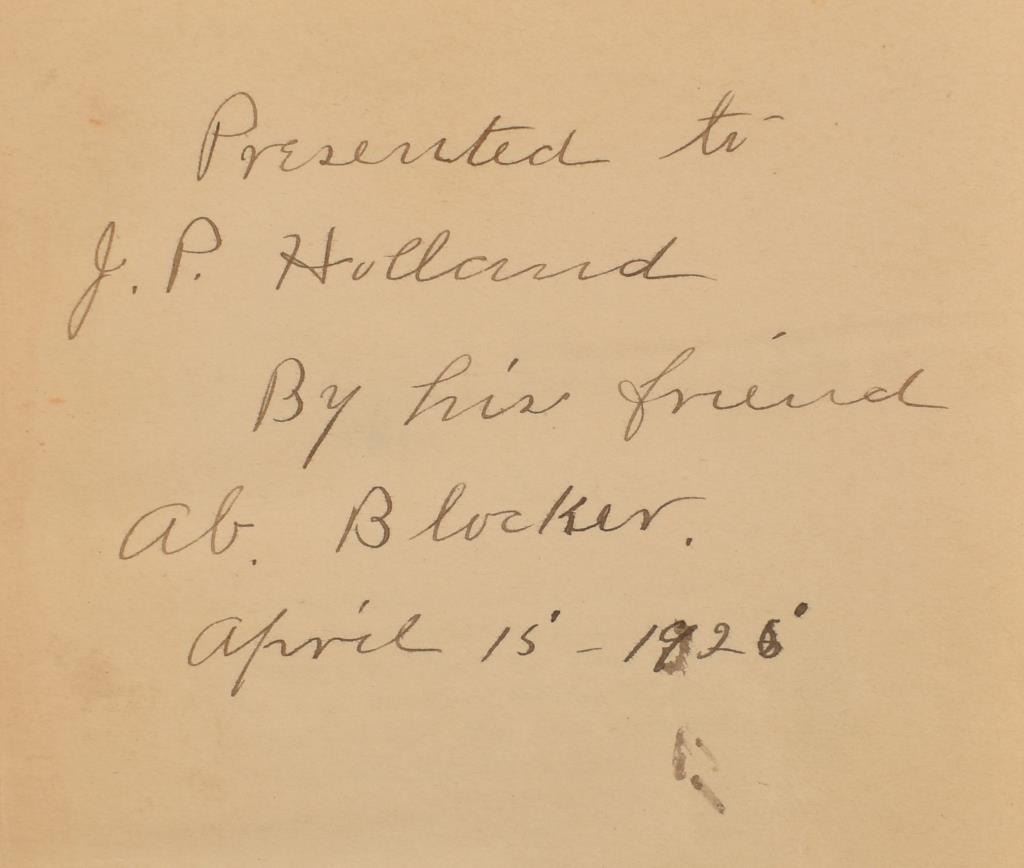 Presented to
J. P. Holland
By his friend
Ab. Blocker.
April 15 - 1925